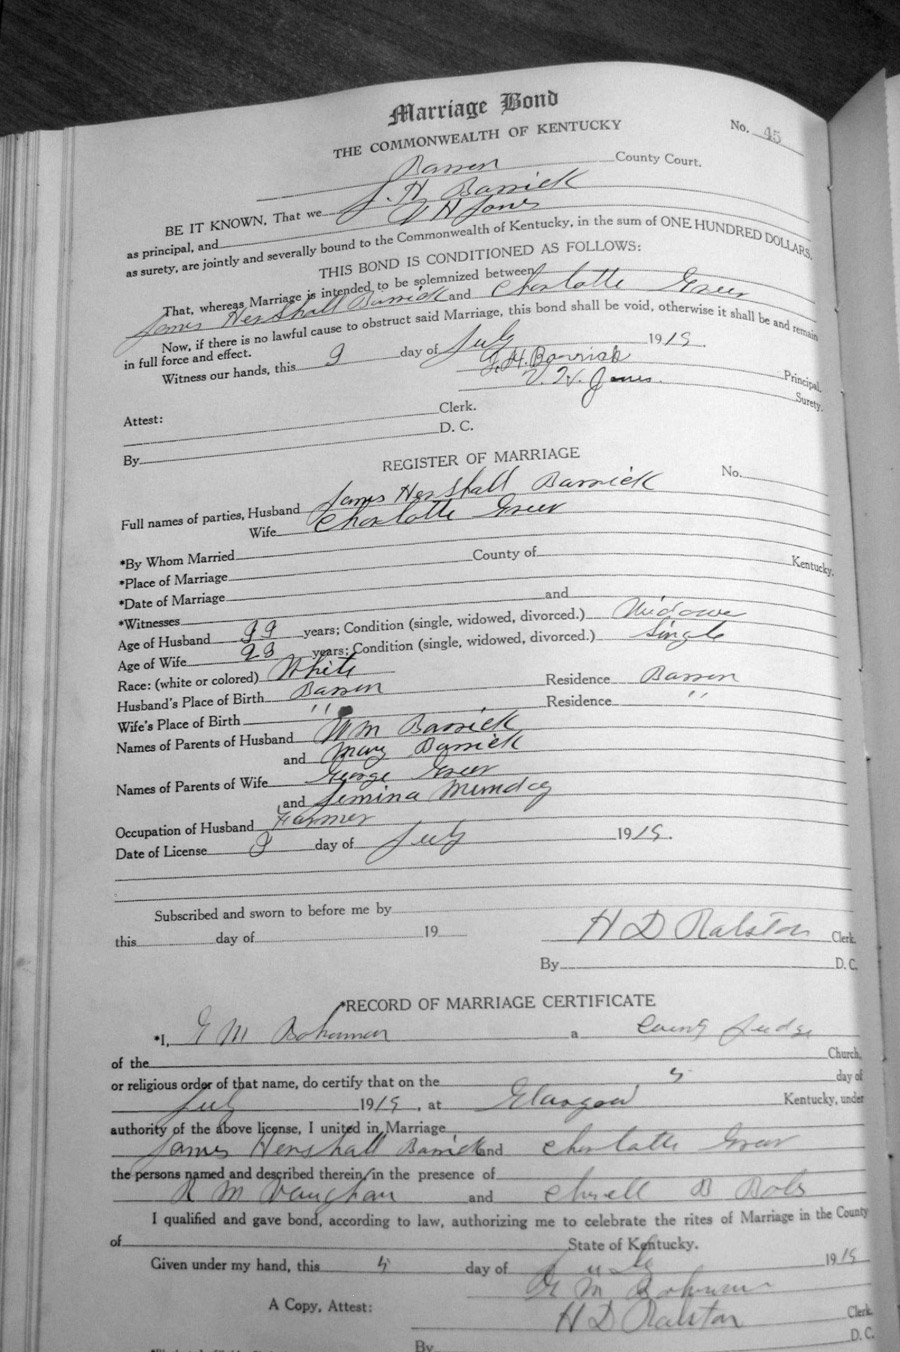 Marriage Bond
No. 45
THE COMMONWEALTH OF KENTUCKY
Barren County Court.
BE IT KNOWN, That we J. H. Barrick
as principal, and V H Jones
as surety, are jointly and severally bound to the Commonwealth of Kentucky, in the sum of ONE HUNDRED DOLLARS.
THIS BOND IS CONDITIONED AS FOLLOWS:
That, whereas Marriage is intended to be solemnized between
James Hershall Barrick and Charlotte Greer
Now, if there is no lawful cause to obstruct said Marriage, this bond shall be void, otherwise it shall be and remain
in full force and effect.
Witness our hands, this 9 day of July 1919.
J. H. Barrick Principal.
V. H. Jones. Surety.
Attest:
Clerk.
By D. C.
REGISTER OF MARRIAGE
No.
Full names of parties, Husband James Hershall Barrick
Wife Charlotte Greer
*By Whom Married
*Place of Marriage County of Kentucky.
*Date of Marriage
*Witnesses and
Age of Husband years; Condition (single, widowed, divorced.) Widower
Age of Wife years; Condition (single, widowed, divorced.) Single
Race: (white or colored) White
Husband's Place of Birth Barren Residence Barren
Wife's Place of Birth " Residence "
Names of Parents of Husband Wm Barrick
and Mary Barrick
Names of Parents of Wife George Greer
and
Occupation of Husband Farmer
Date of License day of July 1919.
Subscribed and sworn to before me by
this day of 19
H D Ralston Clerk.
By D. C.
*RECORD OF MARRIAGE CERTIFICATE
*I, a County Judge
of the Church,
or religious order of that name, do certify that on the day of
July 1919, at Glasgow Kentucky, under
authority of the above license, I united in Marriage
James Hershall Barrick and Charlotte Greer
the persons named and described therein, in the presence of
R M Vaughan and
I qualified and gave bond, according to law, authorizing me to celebrate the rites of Marriage in the County
of State of Kentucky.
Given under my hand, this day of July 1919
A Copy, Attest: H D Ralston Clerk.
By D. C.